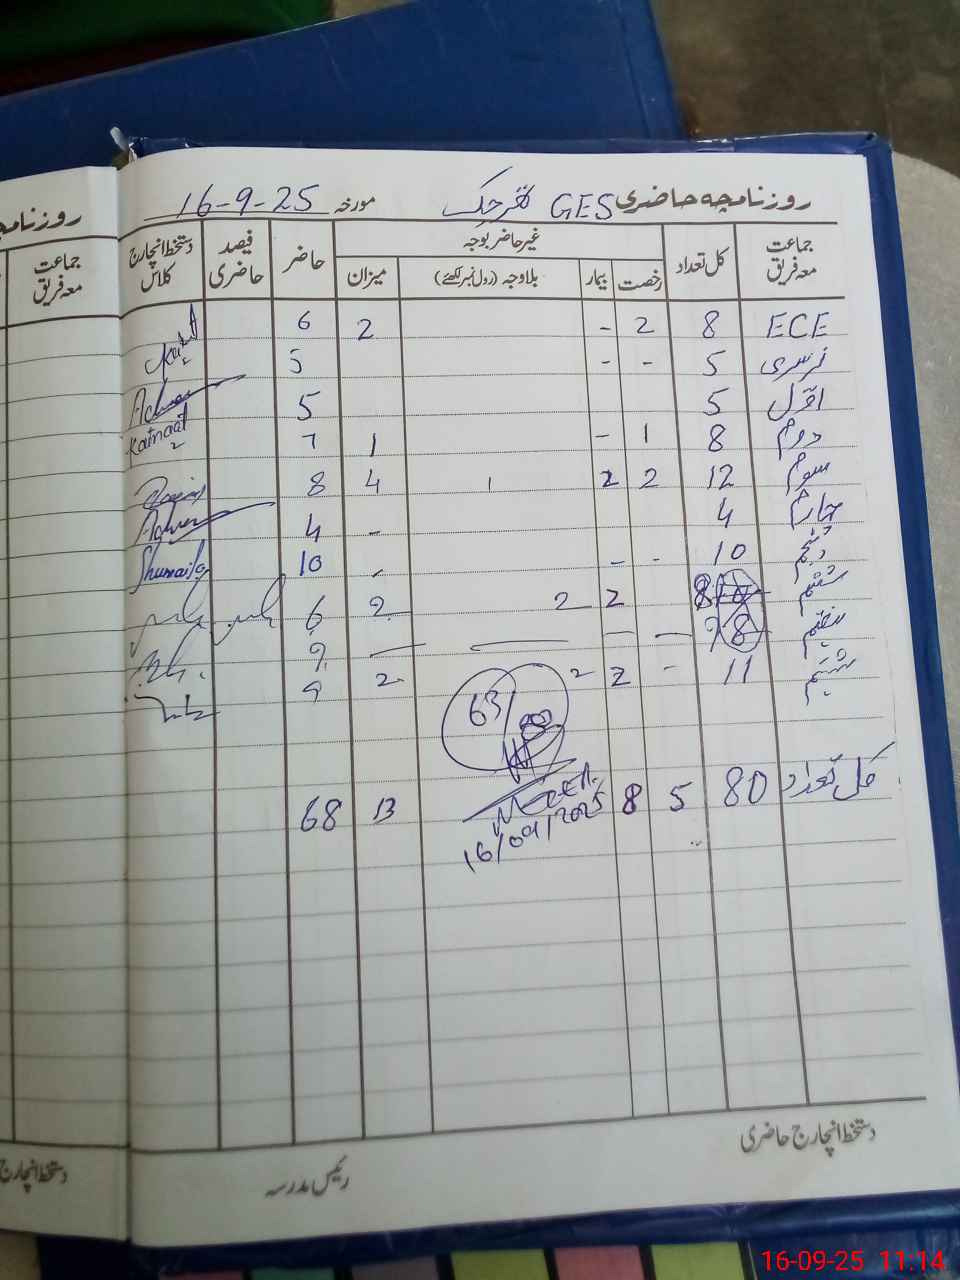 روزنامچہ حاضری GES تفر چک مورخہ 16-9-25
جماعت معہ فریق کل تعداد غیر حاضر بوجہ حاضر فیصد حاضری دستخط انچارج کلاس
رخصت بیمار بلاوجہ (رول نمبر لکھئے) میزان
ECE 8 2 - 2 6
نرسری 5 - - 5
اوّل 5 5
دوم 8 1 - 1 7 Kainaat
سوم 12 2 2 1 4 8
چہارم 4 - 4
پنجم 10 - - - 10 Shumaila
ششم 8 2 2 2 6
ہفتم 9 — — — — 9
ہشتم 11 - 2 2 2 9
63/80
کل تعداد 80 5 8 13 68
16/09/2025
دستخط انچارج حاضری
رئیس مدرسہ
روزنامچہ
جماعت معہ فریق
دستخط انچارج
16-09-25 11:14